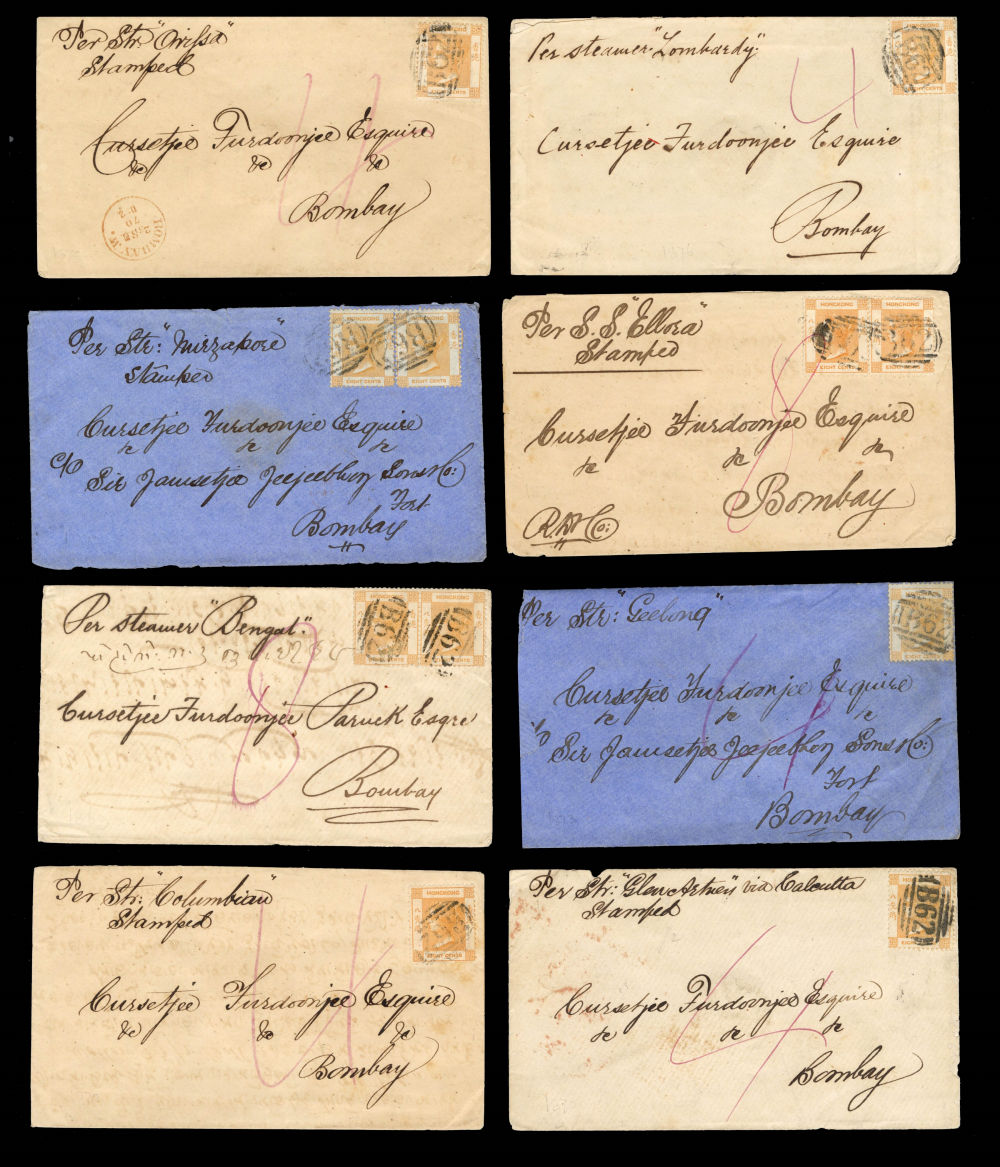 Per Str: "Orissa"
Stamped
HONGKONG
EIGHT CENTS
4
Cursetjee Furdoonjee Esquire
&c &c &c
Bombay
BOMBAY
70
Per steamer "Lombardy"
B62
EIGHT CENTS
4
Cursetjee Furdoonjee Esquire
Bombay
Per Str: "Mirzapore"
Stamped
HONGKONG HONGKONG
B62
EIGHT CENTS EIGHT CENTS
Cursetjee Furdoonjee Esquire
c/o
Sir Jamsetjee Jeejeebhoy Sons & Co:
Fort
Bombay
Per S.S. "Ellora"
Stamped
HONGKONG HONGKONG
B62
EIGHT CENTS EIGHT CENTS
8
Cursetjee Furdoonjee Esquire
Bombay
Per steamer "Bengal"
HONGKONG HONGKONG
B62 B62
8
Cursetjee Furdoonjee Paruck Esqre
Bombay
Per Str: "Geelong"
B62
4
Cursetjee Furdoonjee Esquire
Sir Jamsetjee Jeejeebhoy Sons & Co:
Fort
Bombay
Per Str: "Columbian"
Stamped
HONGKONG
EIGHT CENTS
4
Cursetjee Furdoonjee Esquire
&c &c &c
Bombay
Per Str: "Glenartney" via Calcutta
Stamped
HONGKONG
B62
4
Cursetjee Furdoonjee Esquire
Bombay